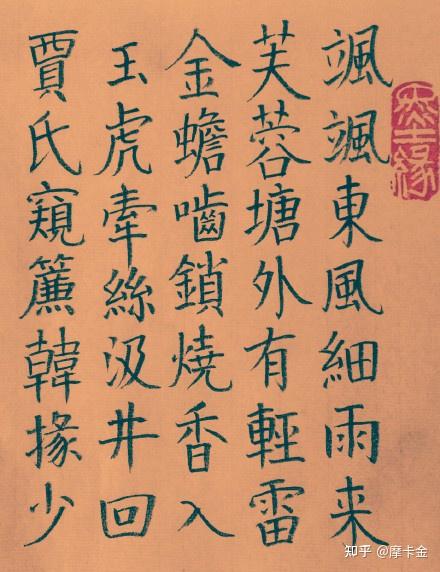 颯颯東風細雨来
芙蓉塘外有輕雷
金蟾嚙鎖燒香入
玉虎牽絲汲井回
賈氏窺簾韓掾少
知乎 @摩卡金